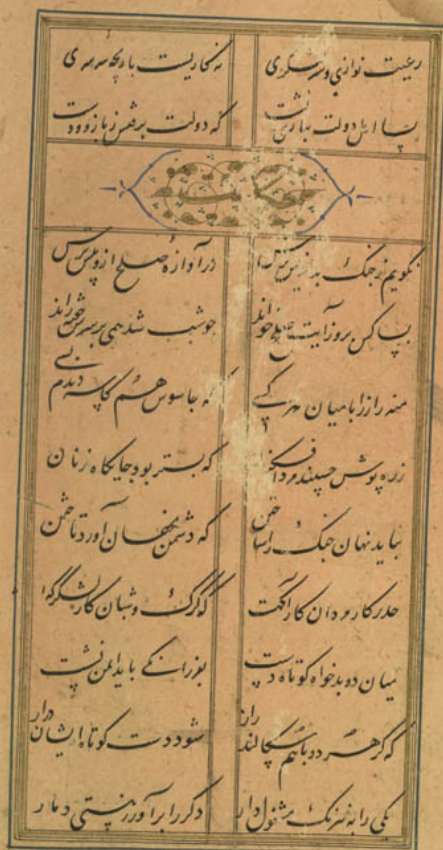 رعیت نوازی و سر لشکری نه کاریست بازیچه سرسری
بسا اهل دولت ببازی نشست که دولت برفتش ز بازی ز دست
حکایت
نگویم ز جنگ بداندیش ترس در آوازه صلح ازو بیش ترس
بسا کس بروز آیت صلح خواند چو شب شد سپه بر سر خفته راند
منه راز را با میان هر کسی که جاسوس هم کاسه دیدم بسی
زره پوش خسپند مرد که بستر بود جایگاه زنان
بباید نهان جنگ را ساختن که دشمن نهان آورد تاختن
حذر کار مردان کار آگهست که گرگ و شبان
میان دو بدخواه کوتاه دست باید ایمن نشست
که گر هر دو باهم سگالند راز شود دست کوتاه ایشان دراز
یکی را به نیرنگ مشغول دار دگر را برآور ز هستی دمار